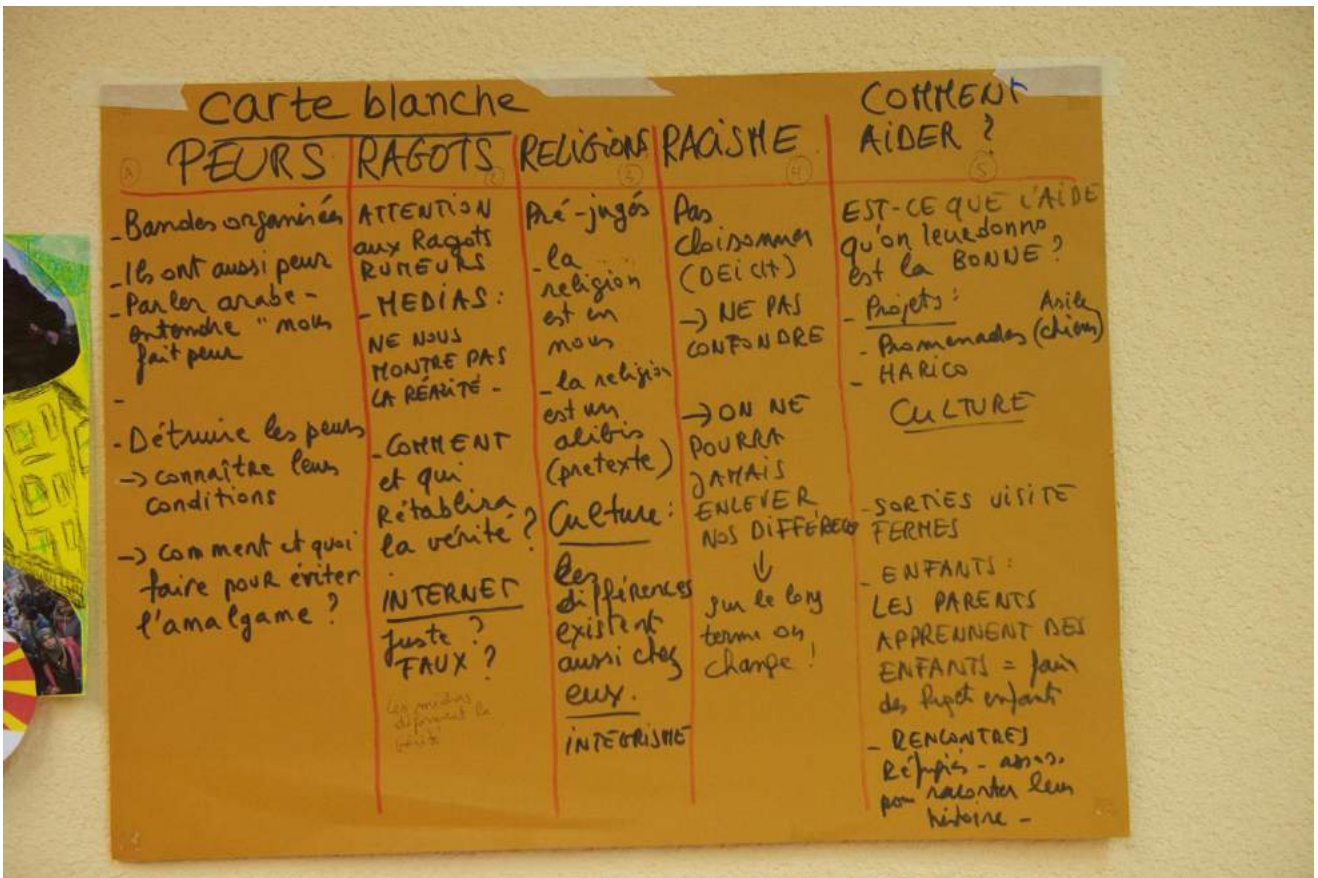 carte blanche
PEURS
- Bandes organisées
- Ils ont aussi peur
- Parler arabe -
entendre " nous
fait peur
-
- Détruire les peurs
-> connaître leurs
conditions
-> comment et quoi
faire pour éviter
l'amalgame ?
RAGOTS
2
ATTENTION
aux Ragots
RUMEURS
- MEDIAS :
NE NOUS
MONTRE PAS
LA RÉALITÉ -
- COMMENT
et qui
Rétablira
la vérité ?
INTERNET
Juste ?
FAUX ?
Les médias
déforment la
vérité
RELIGIONS
3
Pré-jugés
- la
religion
est en
nous
- la religion
est un
alibis
(pretexte)
Culture :
les
différences
existent
aussi chez
eux.
INTÉGRISME
RACISME
4
Pas
cloisonner
(DEICH)
-> NE PAS
CONFONDRE
-> ON NE
POURRA
JAMAIS
ENLEVER
NOS DIFFÉREN
sur le long
terme on
change !
COMMENT
AIDER ?
5
EST-CE QUE L'AIDE
qu'on leur donne
est la BONNE ?
- Projets : Asile
- Promenades (chiens)
- HARICO
CULTURE
- SORTIES VISITE
FERMES
- ENFANTS :
LES PARENTS
APPRENNENT DES
ENFANTS = faire
des Projet enfants
- RENCONTRES
Réfugiés - asso.
pour raconter leur
histoire -